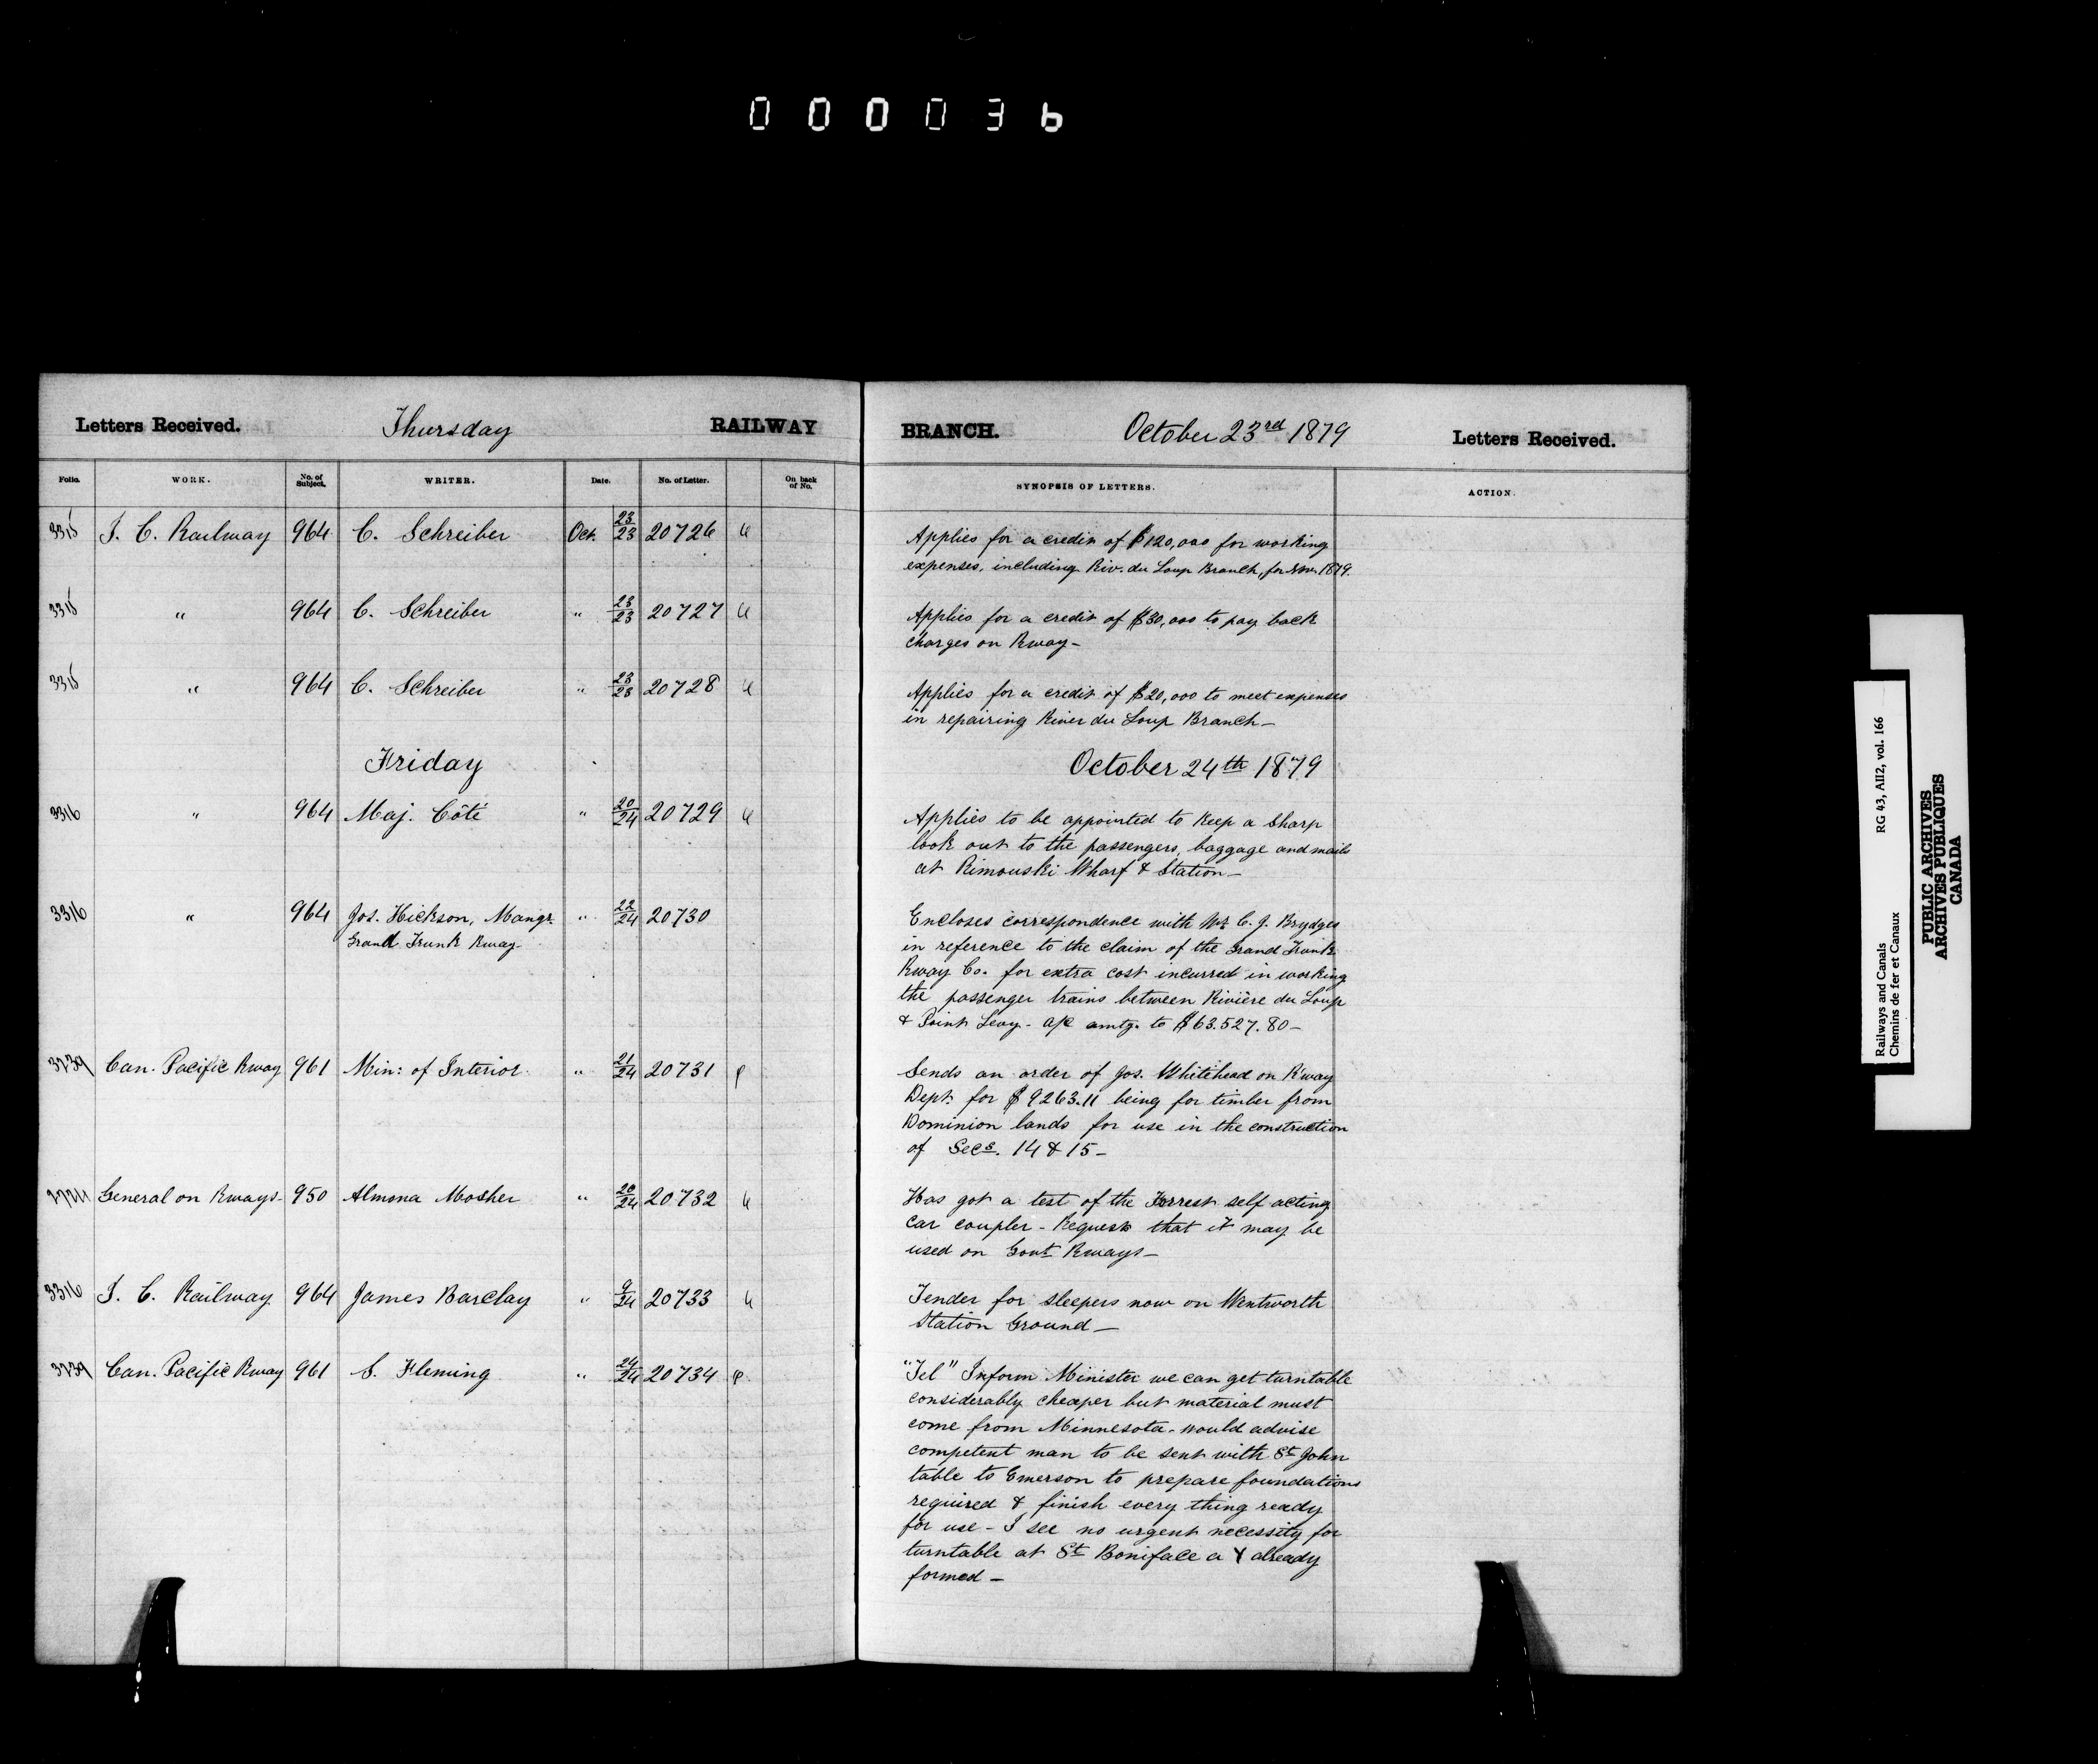 000036
Letters Received. Thursday RAILWAY BRANCH. October 23rd 1879 Letters Received.
Folio. WORK. No. of Subject. WRITER. Date. No. of Letter. On back of No. SYNOPSIS OF LETTERS. ACTION.
3315 I. C. Railway 964 C. Schreiber Oct. 23/23 20726 Applies for a credit of $120,000 for working
expenses, including Riv. du Loup Branch, for Nov. 1879.
3315 " 964 C. Schreiber " 23/23 20727 Applies for a credit of $30,000 to pay back
charges on Rway -
3315 " 964 C. Schreiber " 23/23 20728 Applies for a credit of $20,000 to meet expenses
in repairing River du Loup Branch -
Friday October 24th 1879
3316 " 964 Maj. Côté " 20/24 20729 Applies to be appointed to keep a sharp
look out to the passengers, baggage and mails
at Rimouski Wharf & Station -
3316 " 964 Jos. Hickson, Mangr. " 22/24 20730 Encloses correspondence with Mr. C. J. Brydges
Grand Trunk Rway. in reference to the claim of the Grand Trunk
Rway Co. for extra cost incurred in working
the passenger trains between Rivière du Loup
& Point Levy - a/c amtg. to $63.527.80 -
3739 Can. Pacific Rway 961 Min: of Interior " 21/24 20731 Sends an order of Jos. Whitehead on R'way
Dept. for $9263.11 being for timber from
Dominion lands for use in the construction
of Secs. 14 & 15 -
General on Rways - 950 Almona Mosher " 20/24 20732 Has got a test of the Forrest self acting
car coupler - Requests that it may be
used on Govt. Rways -
3316 I. C. Railway 964 James Barclay " 9/24 20733 Tender for sleepers now on Wentworth
Station Ground -
3739 Can. Pacific Rway 961 S. Fleming " 24/24 20734 "Tel" Inform Minister we can get turntable
considerably cheaper but material must
come from Minnesota - would advise
competent man to be sent with St. John
table to Emerson to prepare foundations
required & finish every thing ready
for use - I see no urgent necessity for
turntable at St. Boniface a Y already
formed -
Railways and Canals RG 43, AII2, vol. 166
Chemins de fer et Canaux
PUBLIC ARCHIVES
ARCHIVES PUBLIQUES
CANADA